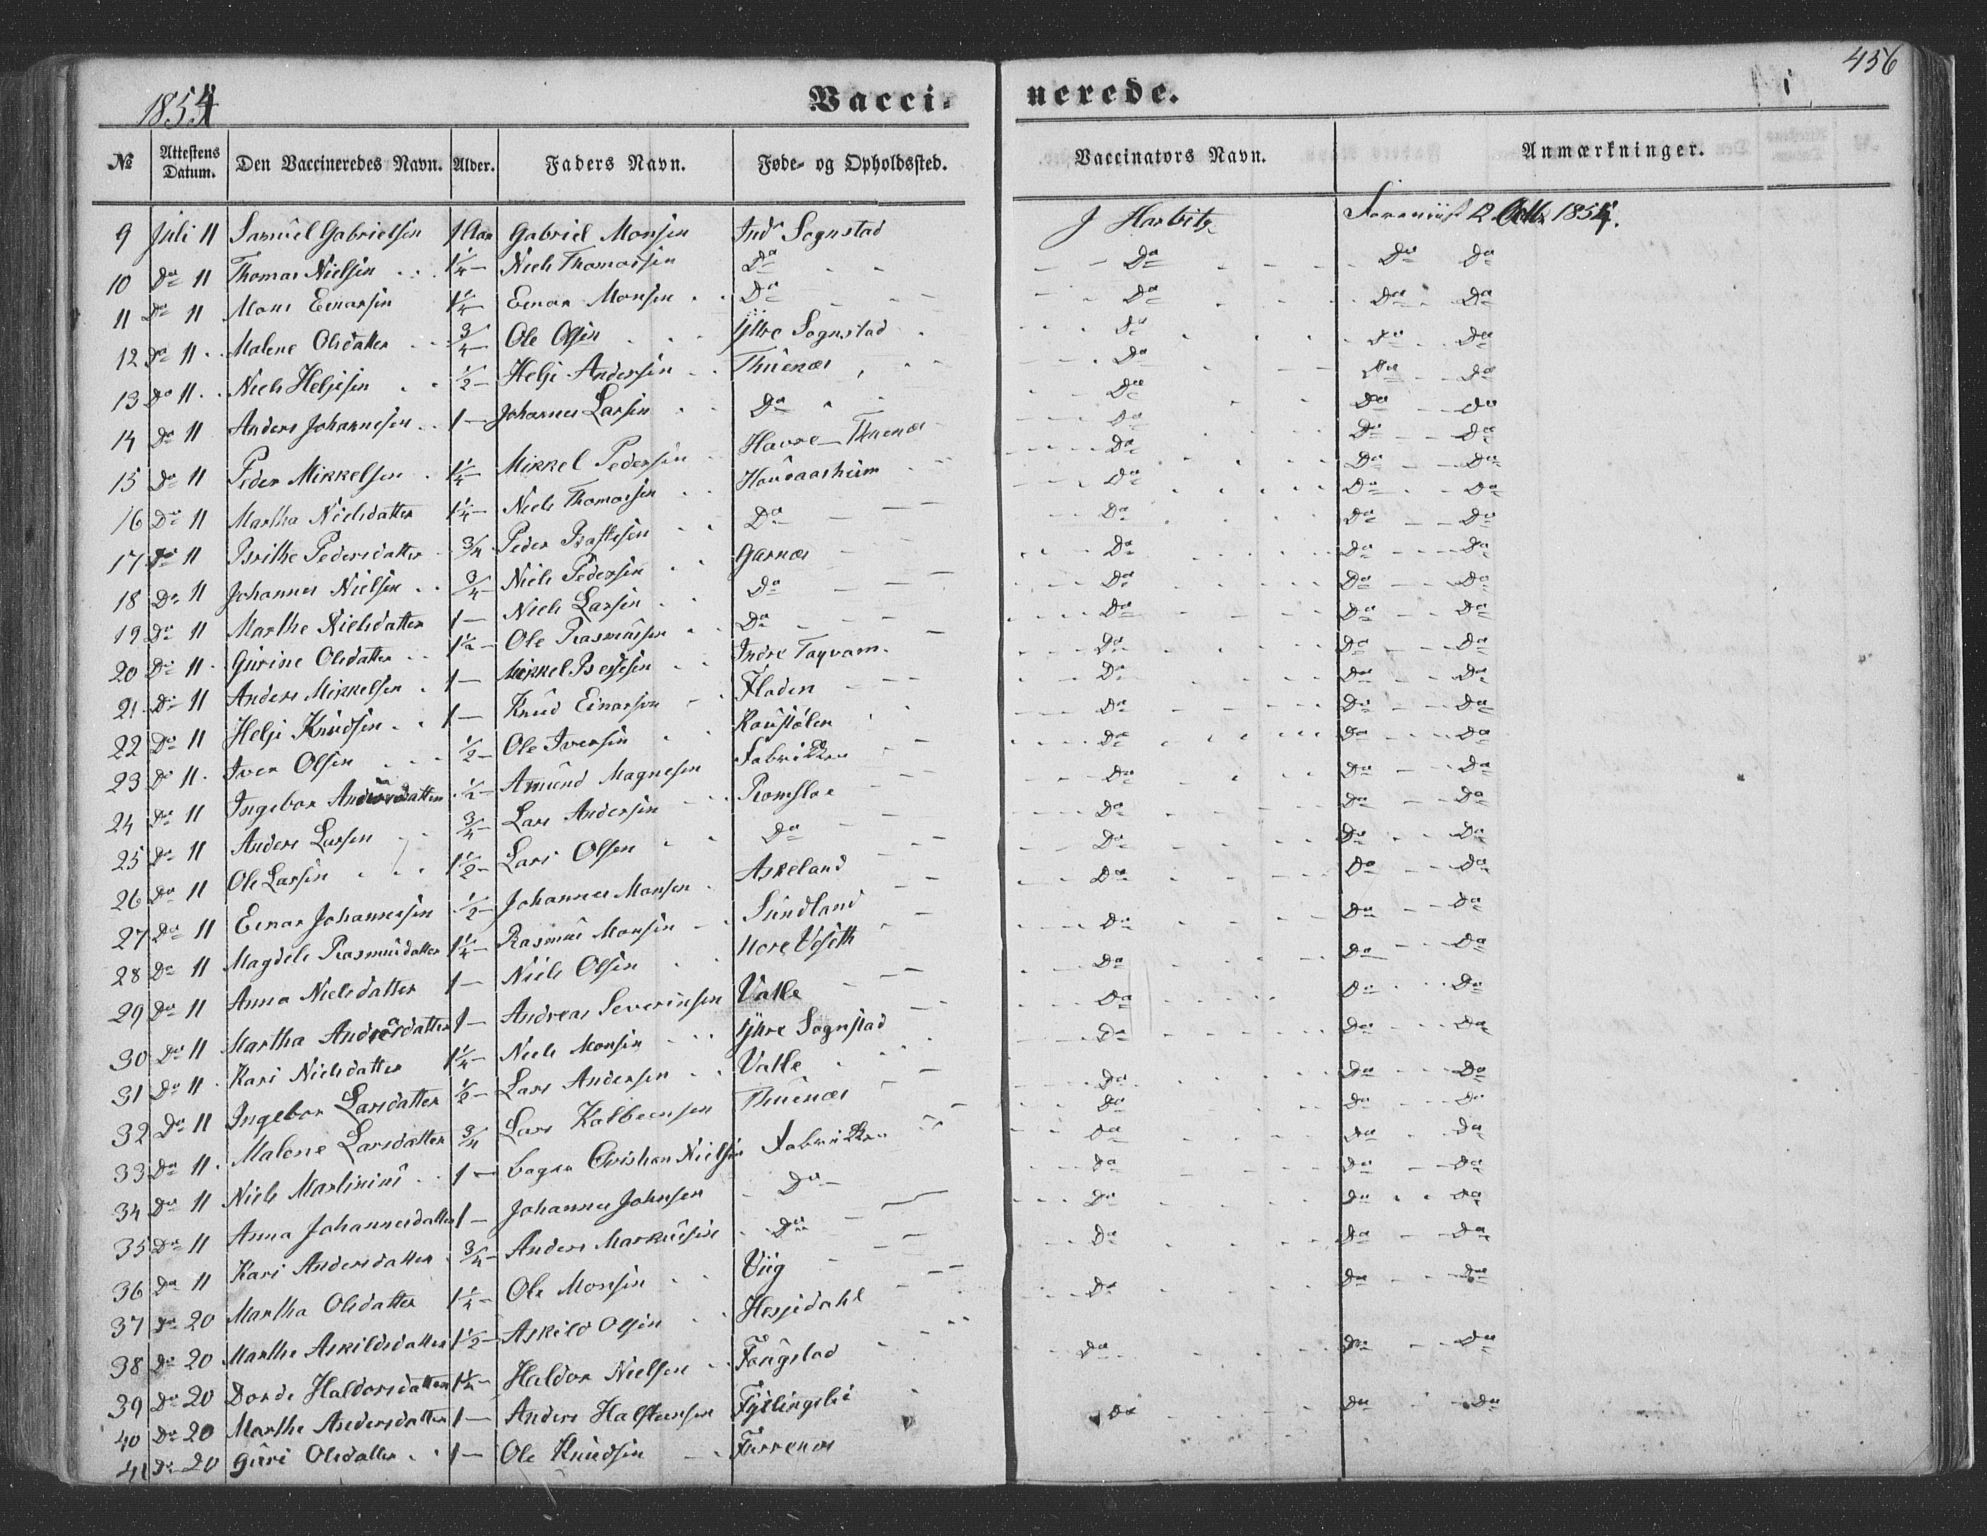 456
1854
Vacci- nerede.
№ Attestens Datum. Den Vaccineredes Navn. Alder. Faders Navn. Føde- og Opholdssted. Vaccinators Navn. Anmærkninger.
9 Juli 11 Samuel Gabrielsen 1 Aar Gabriel Monsen Indr Sognstad J Harbitz 1854.
10 Do 11 Thomas Nielsen 1 1/4 Niels Thomassen Do Do Do Do
11 Do 11 Mons Einarsen 1 1/4 Einar Monsen Do Do Do Do
12 Do 11 Malene Olsdatter 3/4 Ole Olsen Ytre Sognstad Do Do Do
13 Do 11 Niels Heljesen 1/2 Helje Andersen Thuenæs Do Do Do
14 Do 11 Anders Johannesen 1 Johannes Larsen Do Do Do Do
15 Do 11 Peder Mikkelsen 1 1/4 Mikkel Pedersen Havre Thuenæs Do Do Do
16 Do 11 Martha Nielsdatter 1 1/4 Niels Thomassen Do Do Do
17 Do 11 Brithe Pedersdatter 3/4 Peder Do Do Do Do
18 Do 11 Johannes Nielsen 3/4 Niels Pedersen Garnæs Do Do Do
19 Do 11 Marthe Nielsdatter 1 Niels Larsen Do Do Do Do
20 Do 11 Gurine Olsdatter 1 1/2 Ole Rasmussen Do Do Do Do
21 Do 11 Anders Mikkelsen 1 Mikkel Indre Tagvam Do Do Do
22 Do 11 Helje Knudsen 1 Knud Einarsen Fladen Do Do Do
23 Do 11 Iver Olsen 1/2 Ole Iversen Do Do Do
24 Do 11 Ingebor Andersdatter 1/2 Amund Magnesen Fabrikken Do Do Do
25 Do 11 Anders Larsen 3/4 Lars Andersen Romsloe Do Do Do
26 Do 11 Ole Larsen 1 1/2 Lars Olsen Do Do Do Do
27 Do 11 Einar Johannessen 1/2 Johannes Monsen Askeland Do Do Do
28 Do 11 Magdele Rasmusdatter 1 1/4 Rasmus Monsen Sundland Do Do Do
29 Do 11 Anna Nielsdatter 1 Niels Olsen Nore Do Do Do
30 Do 11 Martha Andreasdatter 1 Andreas Severinsen Valle Do Do Do
31 Do 11 Kari Nielsdatter 1 1/4 Niels Monsen Ytre Sognstad Do Do Do
32 Do 11 Ingebor Larsdatter 1/2 Lars Andersen Valle Do Do Do
33 Do 11 Malene Larsdatter 3/4 Lars Kolbeensen Thuenæs Do Do Do
34 Do 11 Niels Martinius 1 Christian Nielsen Fabrikken Do Do Do
35 Do 11 Anna Johannesdatter 1 Johannes Johnsen Do Do Do Do
36 Do 11 Kari Andersdatter 3/4 Anders Markusen Do Do Do Do
37 Do 20 Martha Olsdatter 1 1/4 Ole Monsen Viig Do Do Do
38 Do 20 Marthe Askildsdatter 1 1/2 Askild Olsen Hesjedahl Do Do Do
39 Do 20 Dorde Haldorsdatter 1 1/4 Haldor Nielsen Do Do Do
40 Do 20 Marthe Andersdatter 1 Anders Halsteensen Do Do Do
41 Do 20 Guri Olsdatter 1 Ole Knudsen Furrenæs